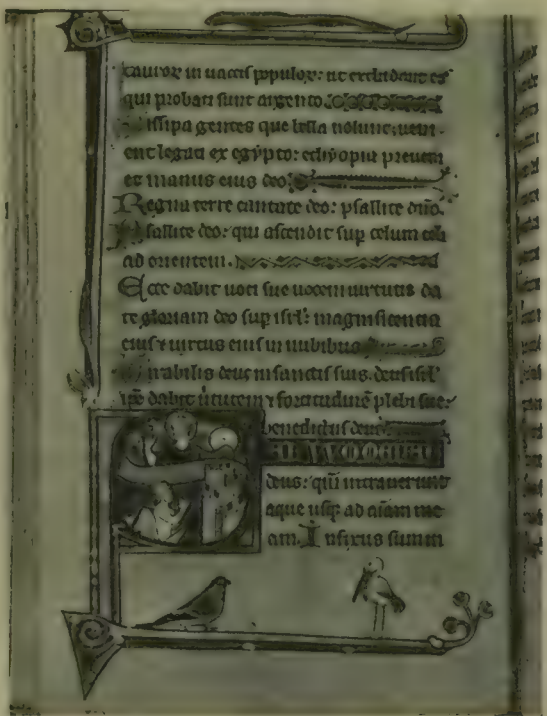 tauroꝝ in uaccis populoꝝ: ut excludant es
qui probati sunt argento
Dissipa gentes que bella uolunt; ueni
ent legati ex egypto: ethyopia preueni
et manus eius deo
Regna terre cantate deo: psallite dn̄o
Psallite deo: qui ascendit sup celum celi
ad orientem.
Ecce dabit uoci sue uocem uirtutis da
te gloriam deo sup isrl̄: magnificentia
eius ⁊ uirtus eius in nubibus
Mirabilis deus in sanctis suis. deus isrl̄
ip̄e dabit uirtutem ⁊ fortitudinē plebi sue
benedictus deus
deus: qm̄ intrauerunt
aque usq; ad aīam me
am. Infixus sum in